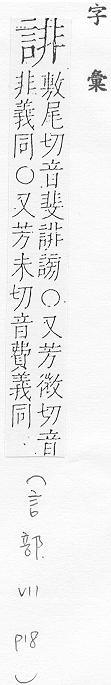 字彙
誹
敷尾切音斐誹謗〇又芳微切音
非義同〇又芳未切音費義同
(言部 VII P18)